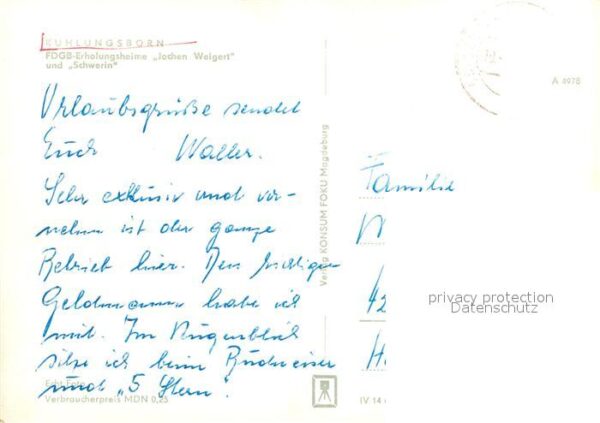 KÜHLUNGSBORN
FDGB-Erholungsheime „Jochen Weigert"
und „Schwerin"
A 4978
Urlaubsgrüße sendet
Euch Walter.
Sehr exklusiv und vor-
nehm ist der ganze
Betrieb hier. Den richtigen
Geldmann habe ich
mit. Im Augenblick
sitze ich beim Budweiser
und „5 Stern".
Echt Foto
Verbraucherpreis MDN 0,25
Verlag KONSUM FOKU Magdeburg
Familie
42
H
privacy protection
Datenschutz
IV 14